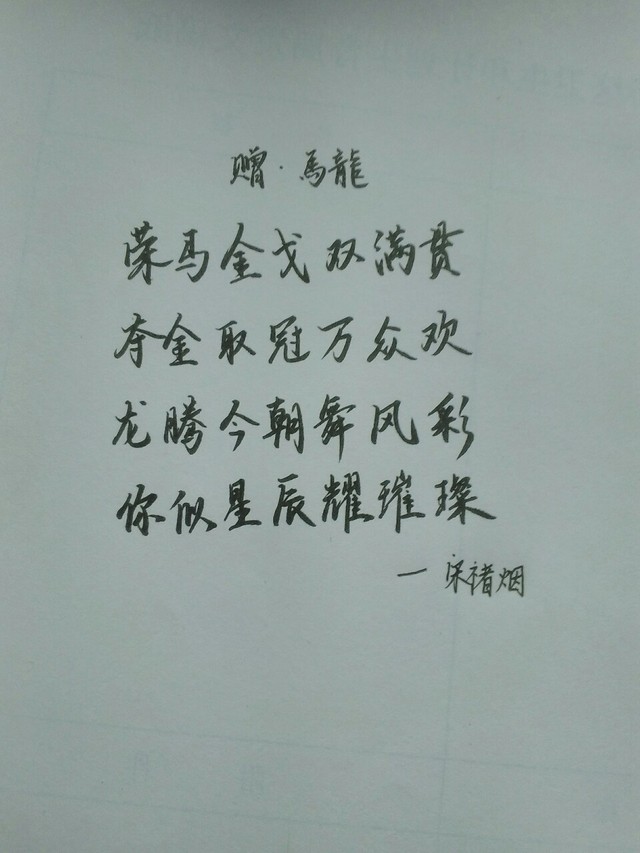 赠·馬龍
荣马金戈双满贯
夺金取冠万众欢
龙腾今朝舞风彩
你似星辰耀璀璨
— 宋褚烟